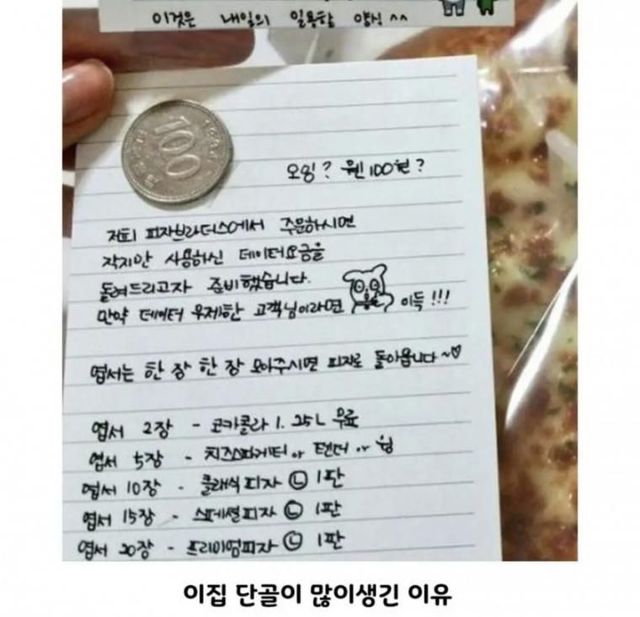 이것은 내일의 일용할 양식 ^^
100
오잉? 웬 100원?
저희 피자브라더스에서 주문하시면
작지만 사용하신 데이터요금을
돌려드리고자 준비했습니다.
만약 데이터 무제한 고객님이라면 이득!!!
엽서는 한 장 한 장 모아주시면 피자로 돌아옵니다~♡
엽서 2장 - 코카콜라 1.25L 무료
엽서 5장 - 치즈스파게티 or 텐더 or 윙
엽서 10장 - 클래식피자 Ⓛ 1판
엽서 15장 - 스페셜피자 Ⓛ 1판
엽서 20장 - 프리미엄피자 Ⓛ 1판
이집 단골이 많이생긴 이유